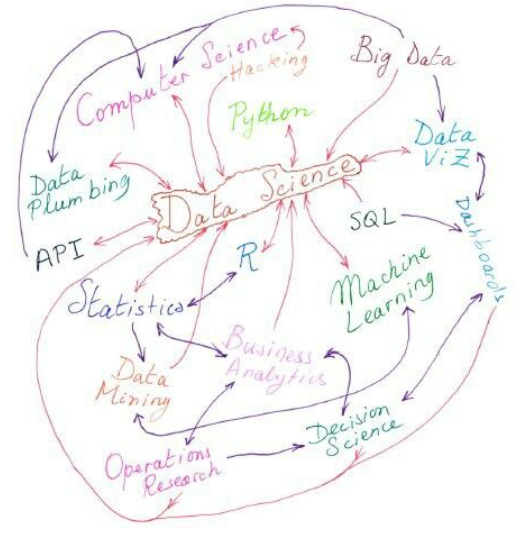 Computer Science
Hacking
Big Data
Python
Data
ViZ
Data
Plumbing
Data Science
SQL
Dashboards
API
R
Machine
Learning
Statistics
Business
Analytics
Data
Mining
Decision
Science
Operations
Research